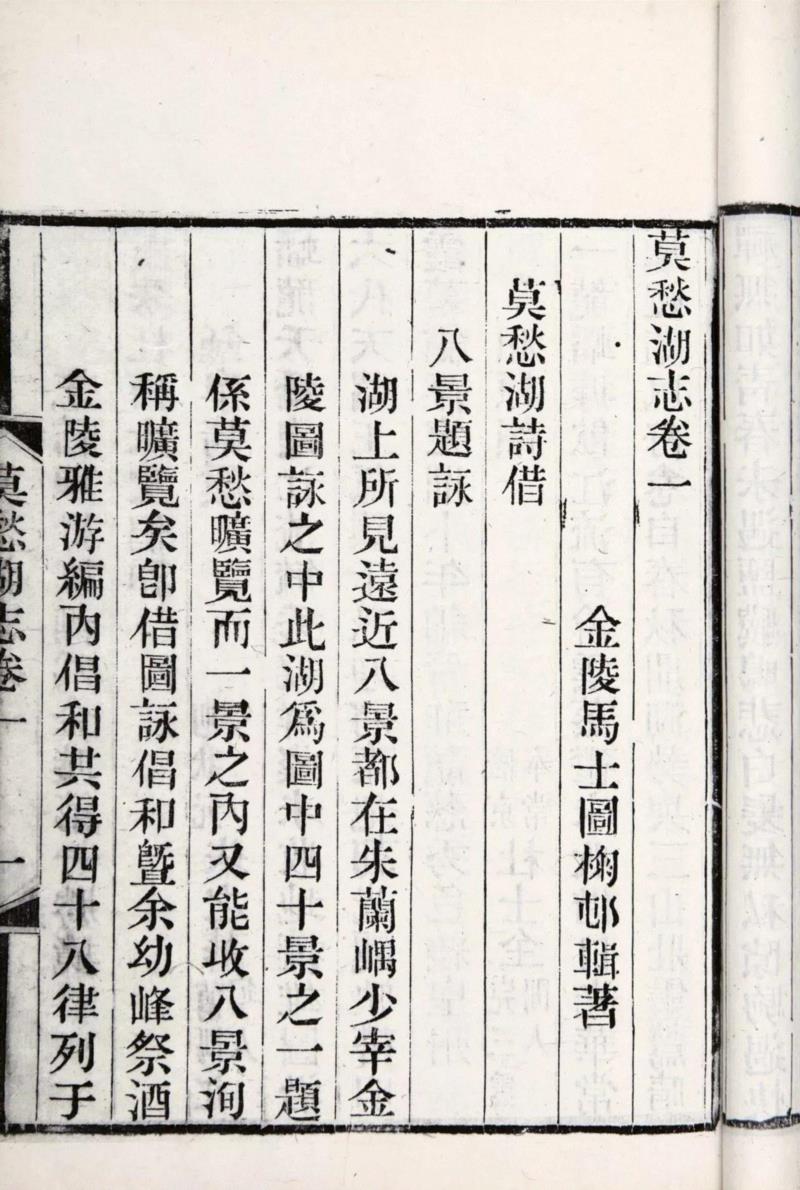 莫愁湖志卷一
金陵馬士圖椈邨輯著
莫愁湖詩借
八景題詠
湖上所見遠近八景都在朱蘭嵎少宰金
陵圖詠之中此湖爲圖中四十景之一題
係莫愁曠覽而一景之內又能收八景洵
稱曠覽矣卽借圖詠倡和曁余幼峰祭酒
金陵雅游編內倡和共得四十八律列于
莫愁湖志卷一
一